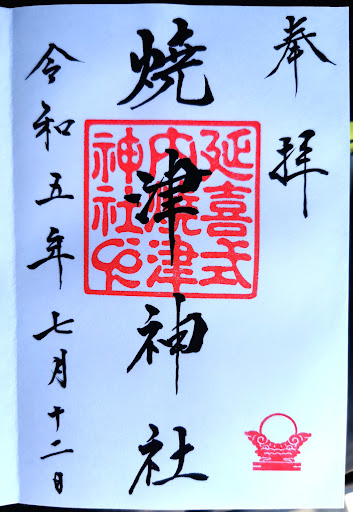 奉拝
焼津神社
延喜式
内焼津
神社印
令和五年七月十二日